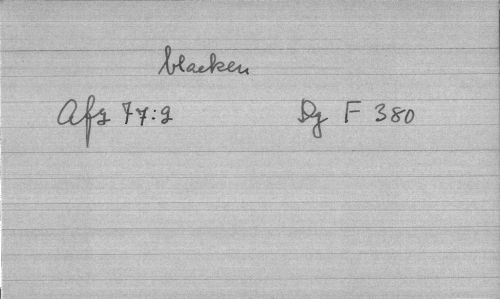 blacken
Afz 77:2 Dg F 380